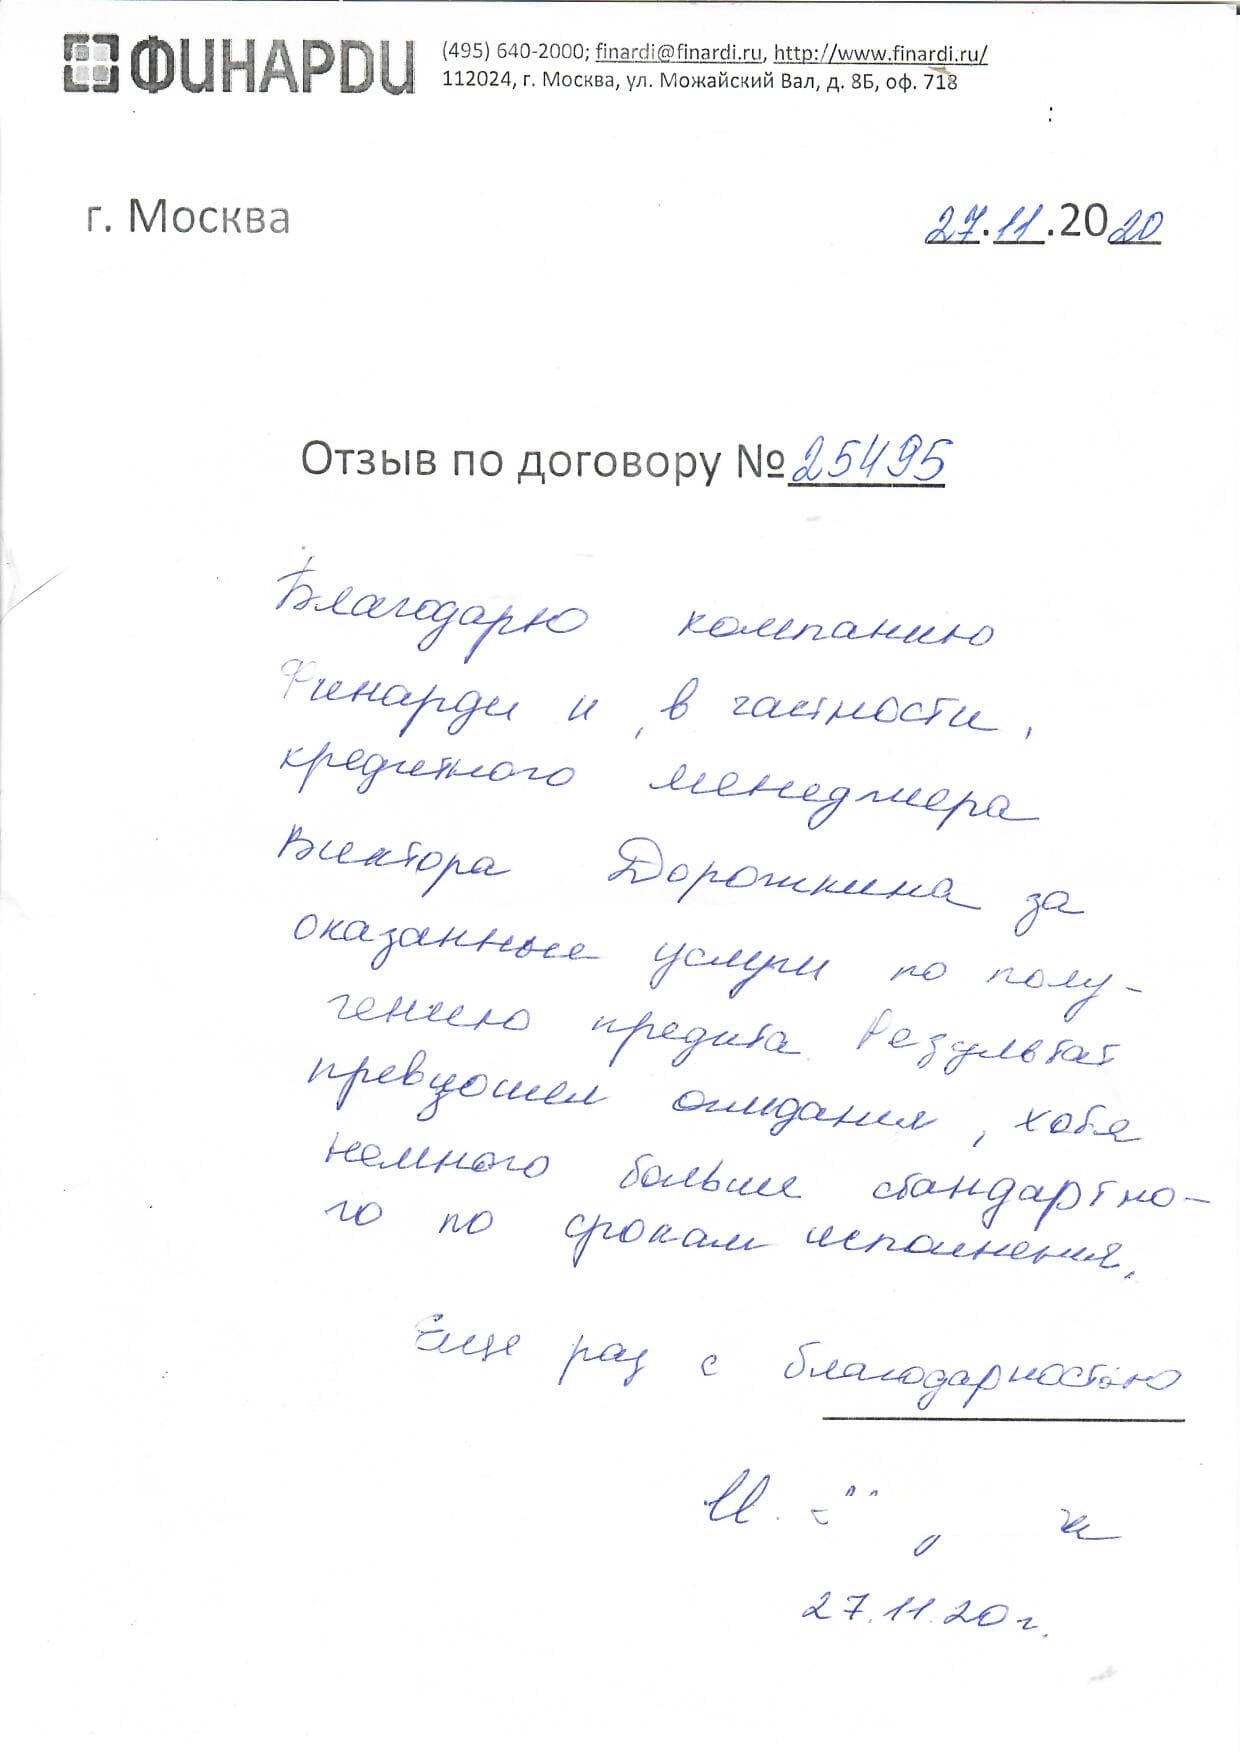 ФИНАРДИ
(495) 640-2000; finardi@finardi.ru, http://www.finardi.ru/
112024, г. Москва, ул. Можайский Вал, д. 8Б, оф. 718
г. Москва
27.11.2020
Отзыв по договору №25495
Благодарю компанию
Финарди и, в частности,
кредитного менеджера
Виктора Дорожкина за
оказанные услуги по полу-
чению кредита. Результат
превзошел ожидания, хотя
немного больше стандартно-
го по срокам исполнения.
Еще раз с благодарностью
И.
27.11.20г.